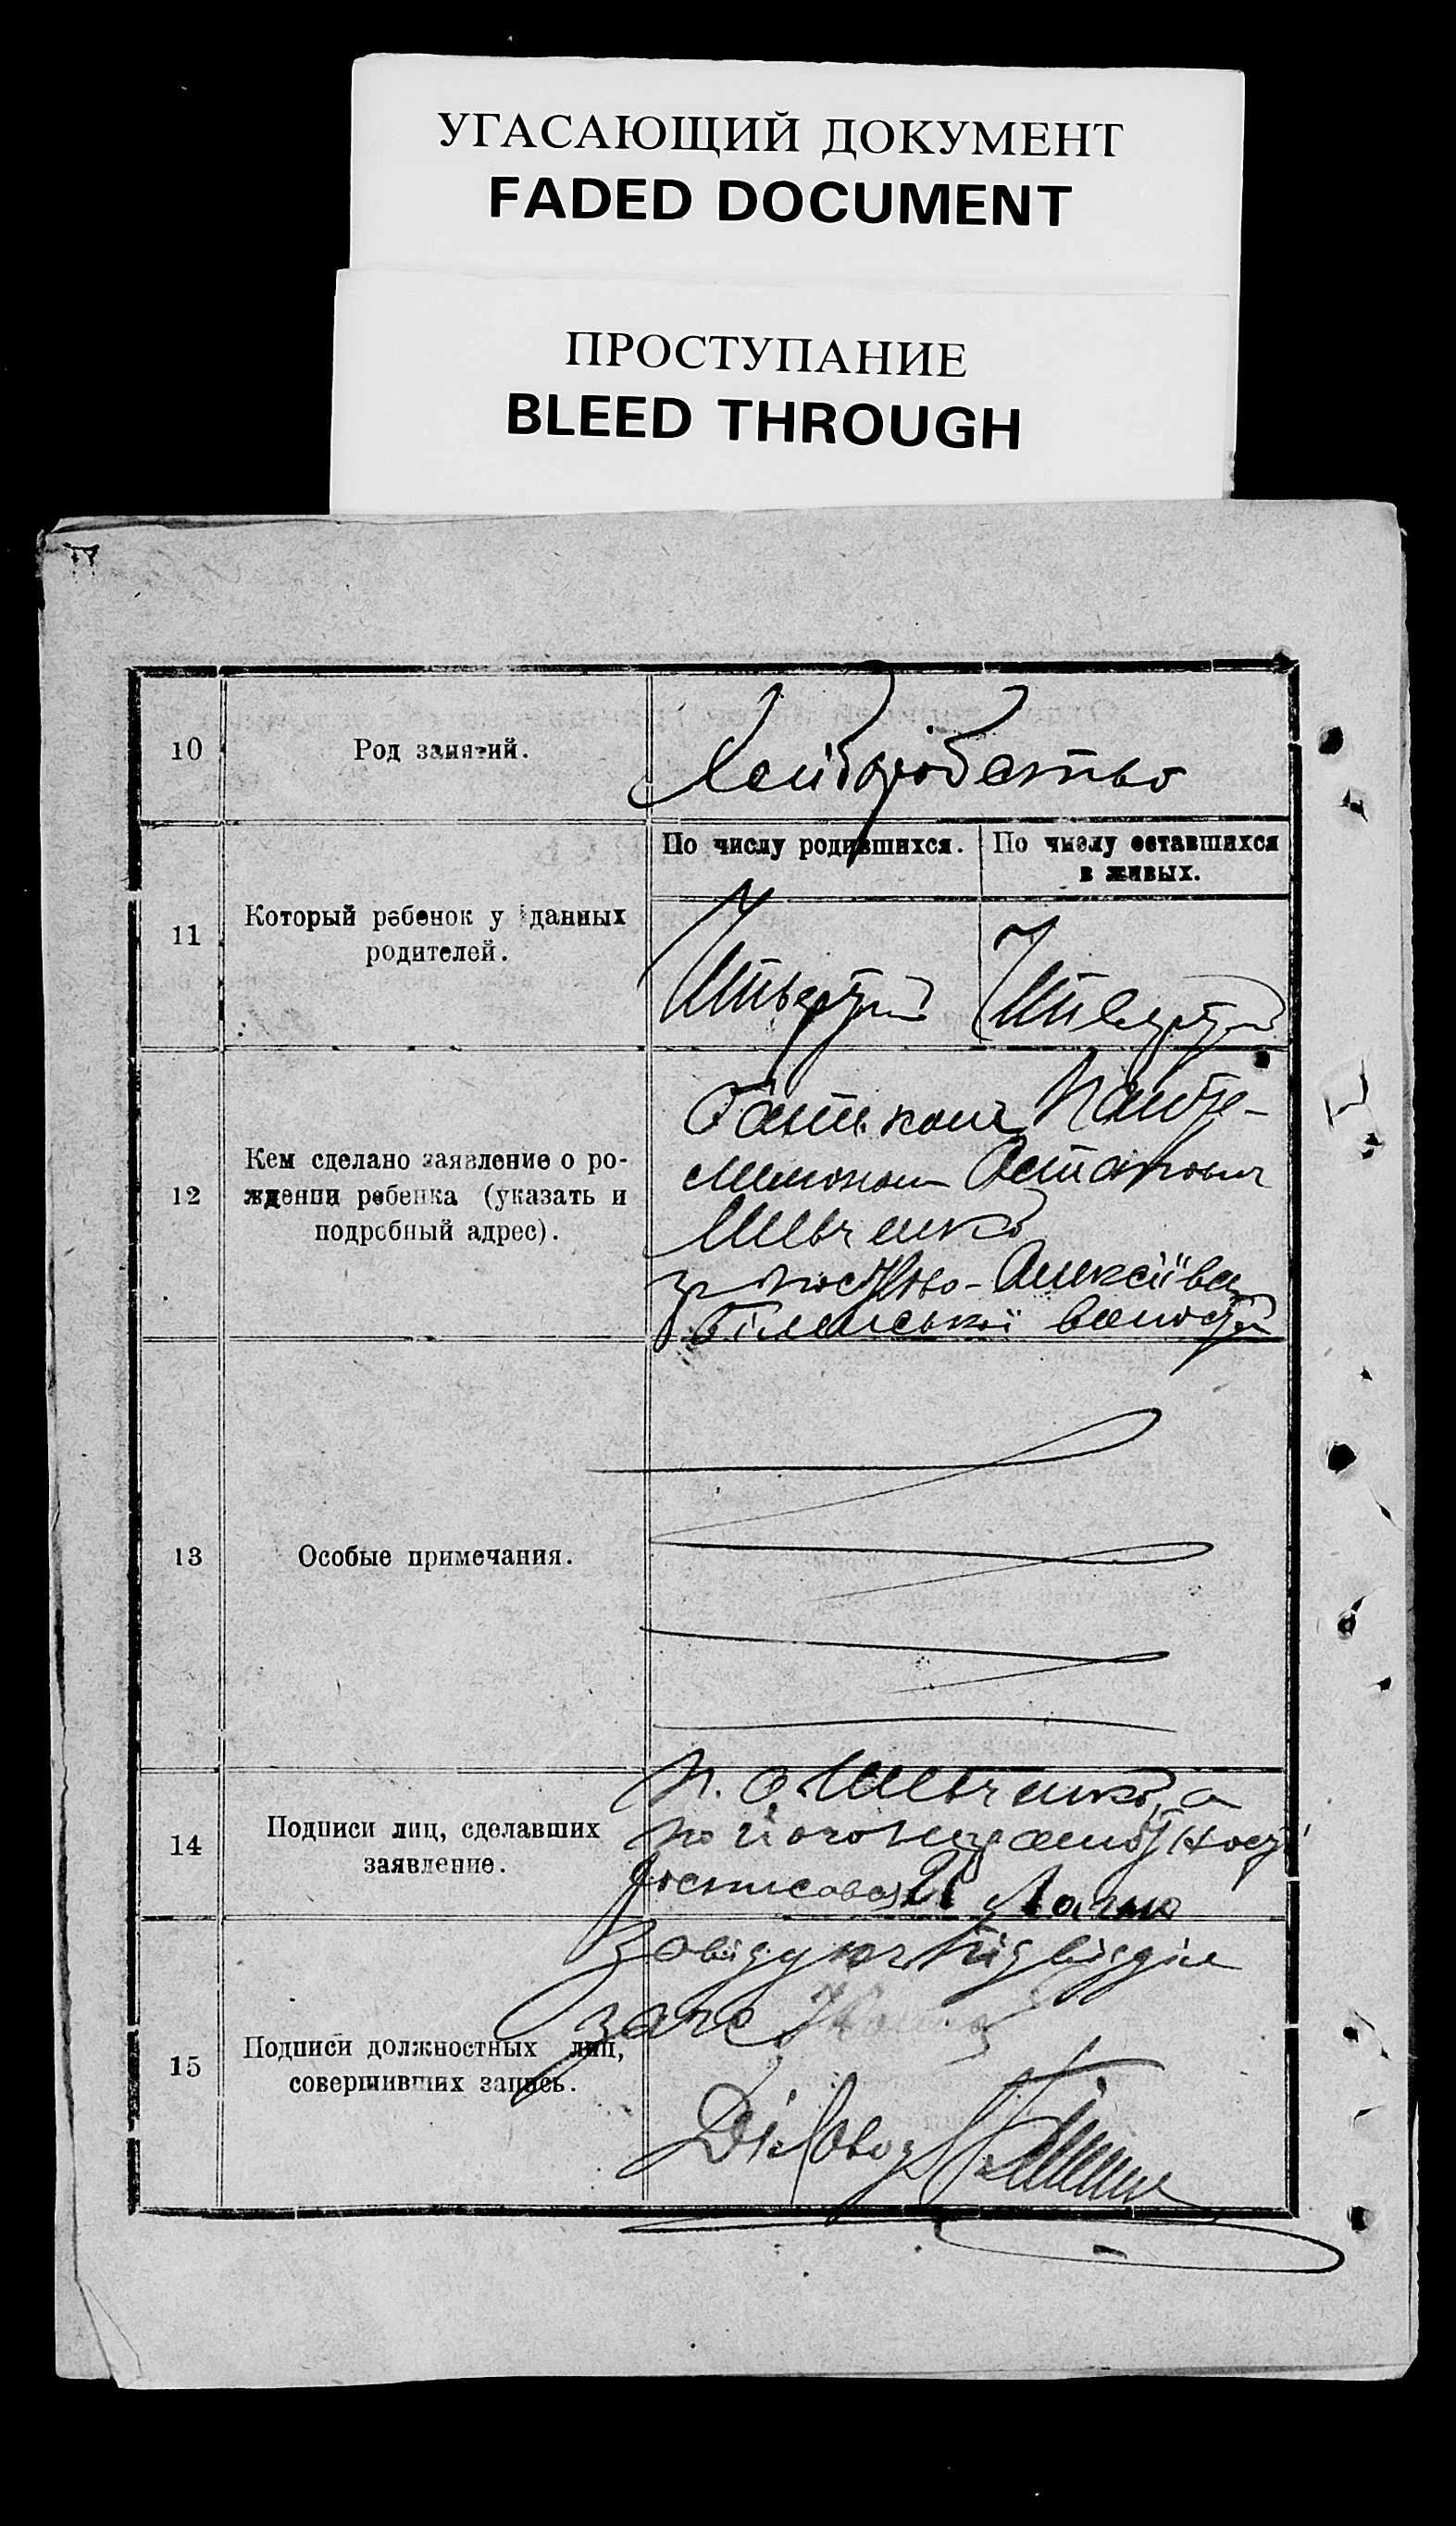 УГАСАЮЩИЙ ДОКУМЕНТ
FADED DOCUMENT
ПРОСТУПАНИЕ
BLEED THROUGH
10
Род занятий.
Хліборобство
11
Который ребенок у данных
родителей.
По числу родившихся.
По числу оставшихся
в живых.
12
Кем сделано заявление о ро-
ждении ребенка (указать и
подробный адрес).
батьком Панте-
Остаповим
Шевченко
Ново-Олексіївка
Біленської волости
13
Особые примечания.
14
Подписи лиц, сделавших
заявление.
П. О. Шевченко, а
по його неграмотности
росписався
15
Подписи должностных лиц,
совершивших запись.
Завідуюч. підвідділ
загс
Діловод